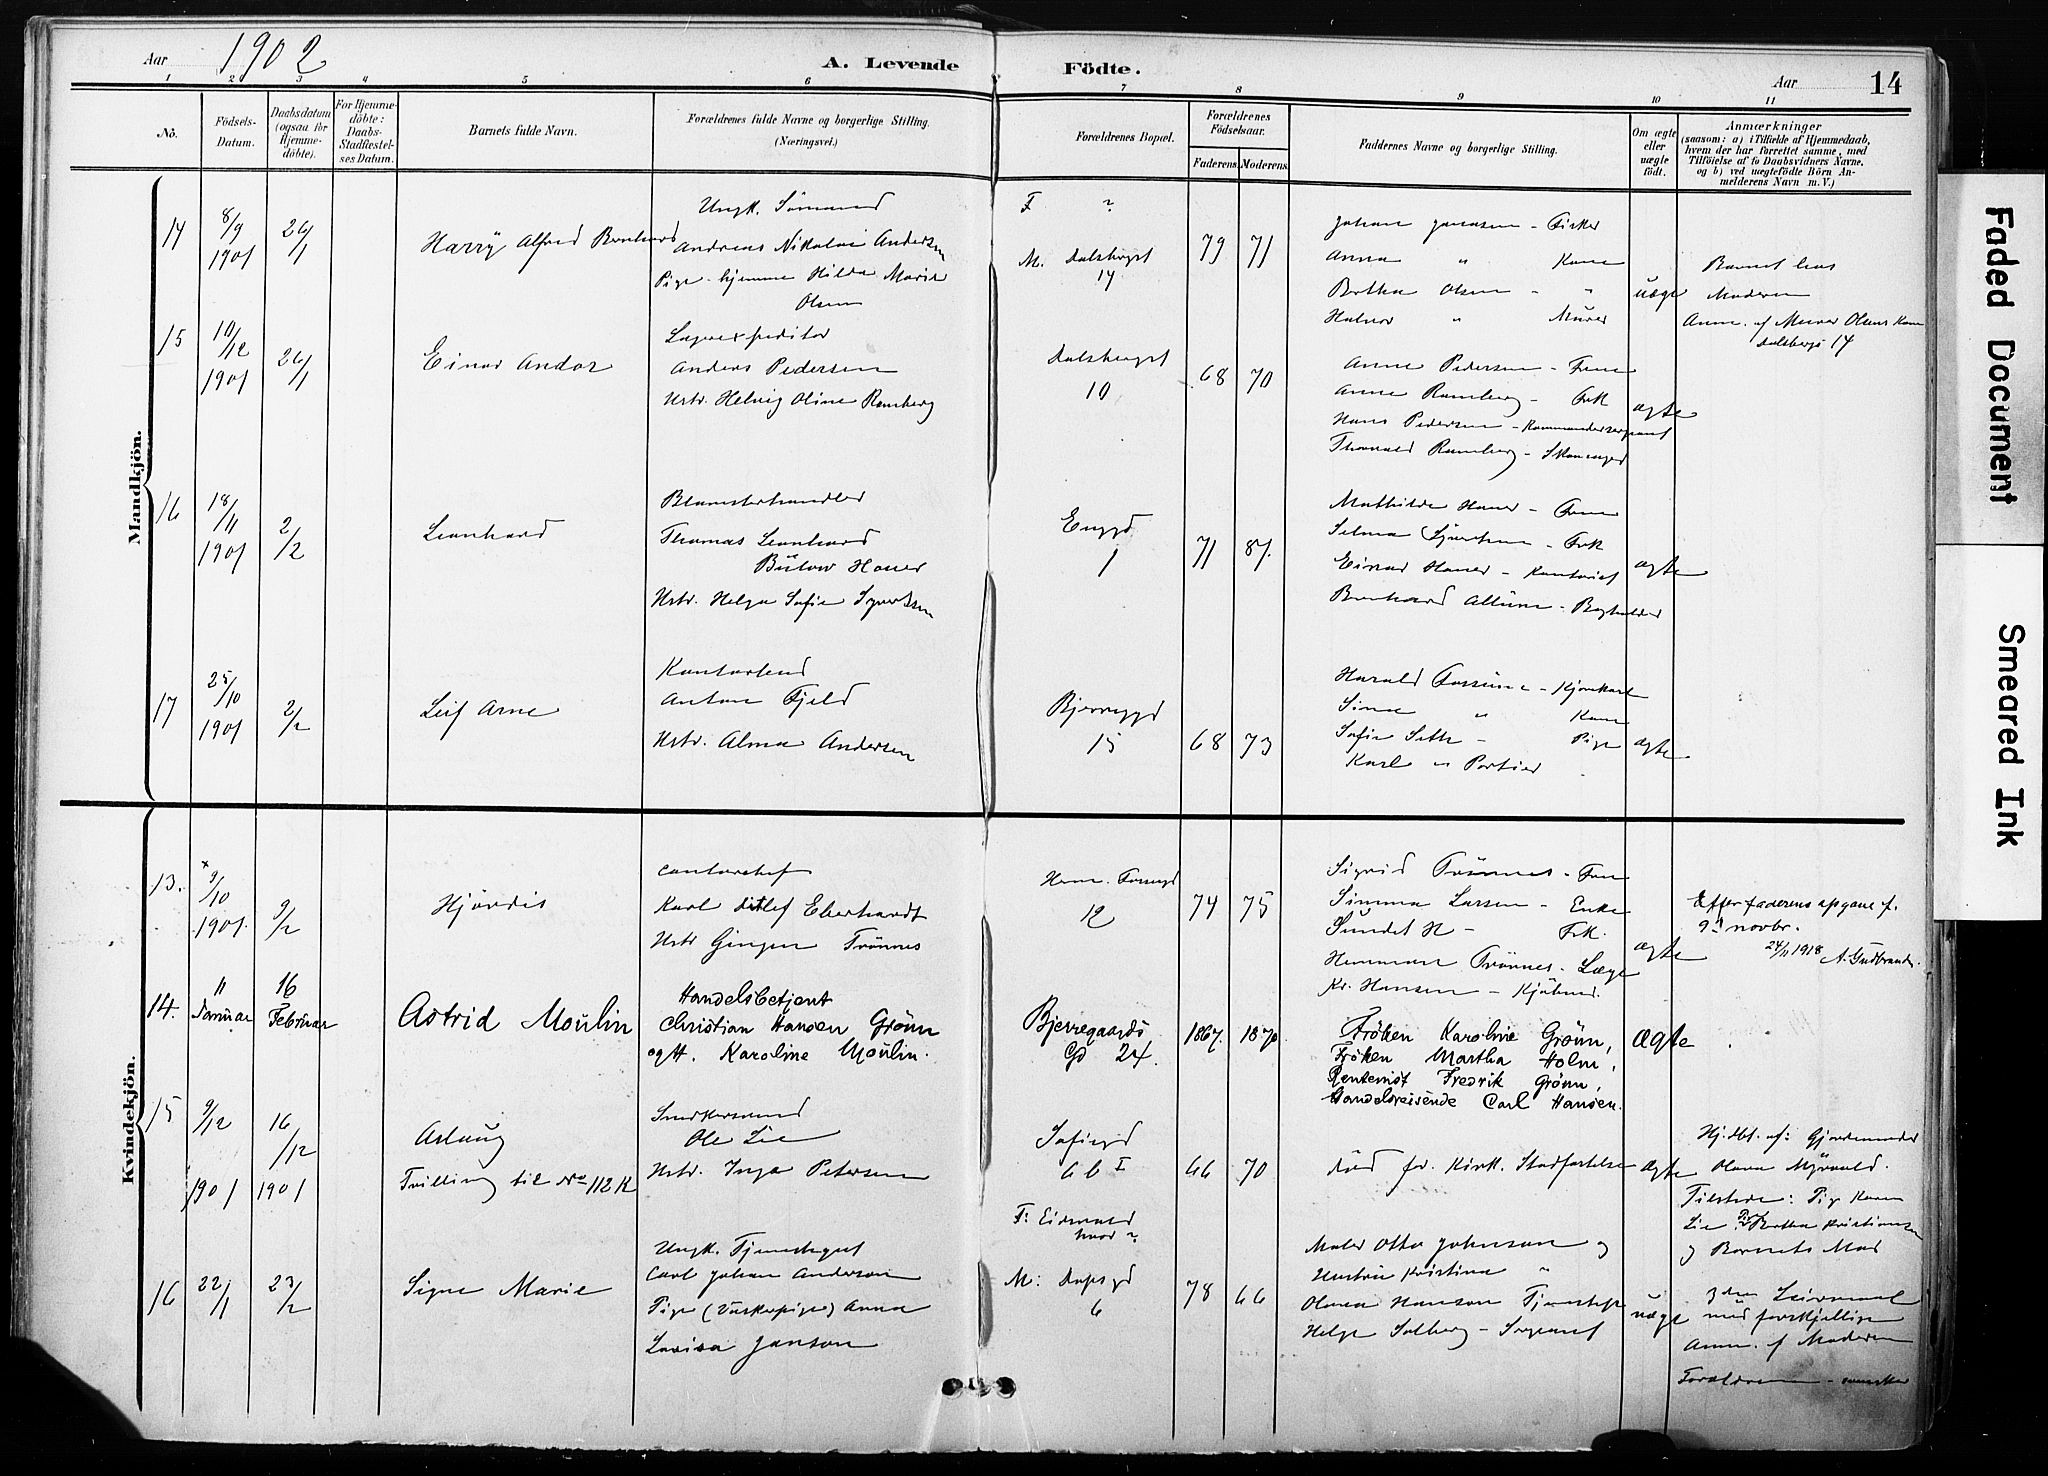 Aar 1902
A. Levende Födte.
Aar 14
1 2 3 4 5 6 7 8 9 10 11
No.
Födsels-
Datum.
Daabsdatum
(ogsaa for
Hjemme-
döbte).
For Hjemme-
döbte:
Daabs-
Stadfæstel-
ses Datum.
Barnets fulde Navn.
Forældrenes fulde Navne og borgerlige Stilling.
(Næringsvei.)
Forældrenes Bopæl.
Forældrenes
Födselsaar.
Faderens. Moderens.
Faddernes Navne og borgerlige Stilling.
Om ægte
eller
uægte
födt.
Anmærkninger
(saasom: a) i Tilfælde af Hjemmedaab,
hvem der har forrettet samme, med
Tilföielse af to Daabsvidners Navne.
og b) ved uægtefödte Börn An-
melderens Navn m. V.)
Mandkjön.
14
8/9
1901
26/1
Harry Alfred Bernhard
Ungk. Sömand
Andreas Nikolai Andersen
Pige hjemme Hilda Marie
Olsen
F ?
M. Dalsbergst
14
79 71
Johan Jonassen - Fisker
Anna " Kone
Bertha Olsen - "
Halvor " Murer
uægte
Barnet hos
Moderen
Anm. af Murer Olsens Kone
Dalsbergs 14
15
10/12
1901
26/1
Einar Andor
Lagerexpeditör
Anders Pedersen
Hstr. Helvig Oline Ramberg
Dalsbergst
10
68 70
Anne Pedersen - Frue
Anne Ramberg - Frk
Hans Pedersen - Kommandersergeant
Thorvald Ramberg -
ægte
16
18/11
1901
2/2
Leonhard
Blomsterhandler
Thomas Leonhard
Bülow Hauer
Hstr. Helga Sofie Syvertsen
Enggd
1
71 87.
Mathilde Hauer - Frue
Selma Syvertsen - Frk
Einar Hauer - Kontorist
Bernhard - Bogholder
ægte
17
25/10
1901
2/2
Leif Arne
Kontorbud
Anton Fjeld
Hstr. Alma Andersen
Bjerregd
15
68 73
Harald Fossum - Kjörekarl
Sina " Kone
Sofie Sæth - Pige
Karl " Portier
ægte
Kvindekjön.
13.
x
9/10
1901.
9/2
Hjördis
Contorchef
Karl Ditlef Eberhardt
Hstr Trönnes
12
74 75
Sigrid Trönnes - Frue
Simma Larsen - Enke
Sundet H - Frk.
Hemman Trönnes - Læge
Kr. Hansen - Kjöbmd.
ægte
Efter faderens opgave f.
9. novbr.
24/11 1918 A. Gudbrands.
14.
11
Januar
16
Februar
Astrid Moulin
Handelsbetjent
Christian Hansen Grönn
og H. Karoline Moulin.
Bjerregaards
Gd 24.
1867. 1870
Fröken Karoline Grönn,
Fröken Martha Holm,
Rentenist Fredrik Grönn,
Handelsreisende Carl Hansen.
ægte
15
9/12
1901
16/12
1901
Aslaug
Tvilling til No 112 K
Snedkersvend
Ole Lie
Hstr. Inga Petersen
Sofiegd
66 I
66 70
död för Kirk. Stadfæstelse
ægte
Hj.dbt. af: Gjordemoder
Olava Myrvold.
Tilstede: Pige Karen
Lie, Pige Bertha Kristiansen
og Barnets Mor
16
22/1
23/2
Signe Marie
Ungk. Tjenestegut
Carl Johan Anderson
Pige (Vaskerpige) Anna
Lovisa Janson
F: Eidsvold
hvor?
M: Dopsgd
6
78 66
Maler Otto Johnson og
Hustru Kristina "
Olava Hanson Tjenestepg
Helge Solberg - Sergeant
uægte
3die Leiermaal
med forskjellige
Anm. af Moderen
Forældrene - svenske
Faded Document
Smeared Ink